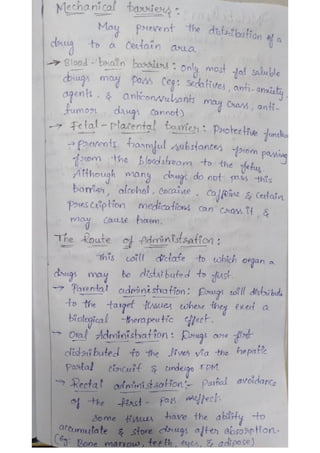 Mechanical barriers :
May prevent the distribution of a
drug to a certain area.
→ Blood-brain barriers : only most fat soluble
drugs may pass (eg: sedatives, anti-anxiety
agents, & anticonvulsants may cross, anti-
tumor drugs cannot)
→ Fetal-placental barrier : Protective function
→ prevents harmful substances from passing
from the bloodstream to the fetus
Although many drugs do not pass this
barrier, alcohol, cocaine, caffeine & certain
prescription medications can cross it, &
may cause harm.
The Route of Administration :
This will dictate to which organ a
drugs may be distributed to first.
→ Parental administration : Drugs will distribute
to the target tissues where they exert a
biological -therapeutic effect.
→ Oral Administration : Drugs are first
distributed to the liver via the hepatic
portal circuit & undergo FPM
→ Rectal administration:- Partial avoidance
of the first - pass effect.
Some tissues have the ability to
accumulate & store drugs after absorption.
(eg: Bone marrow, teeth, eyes, & adipose)